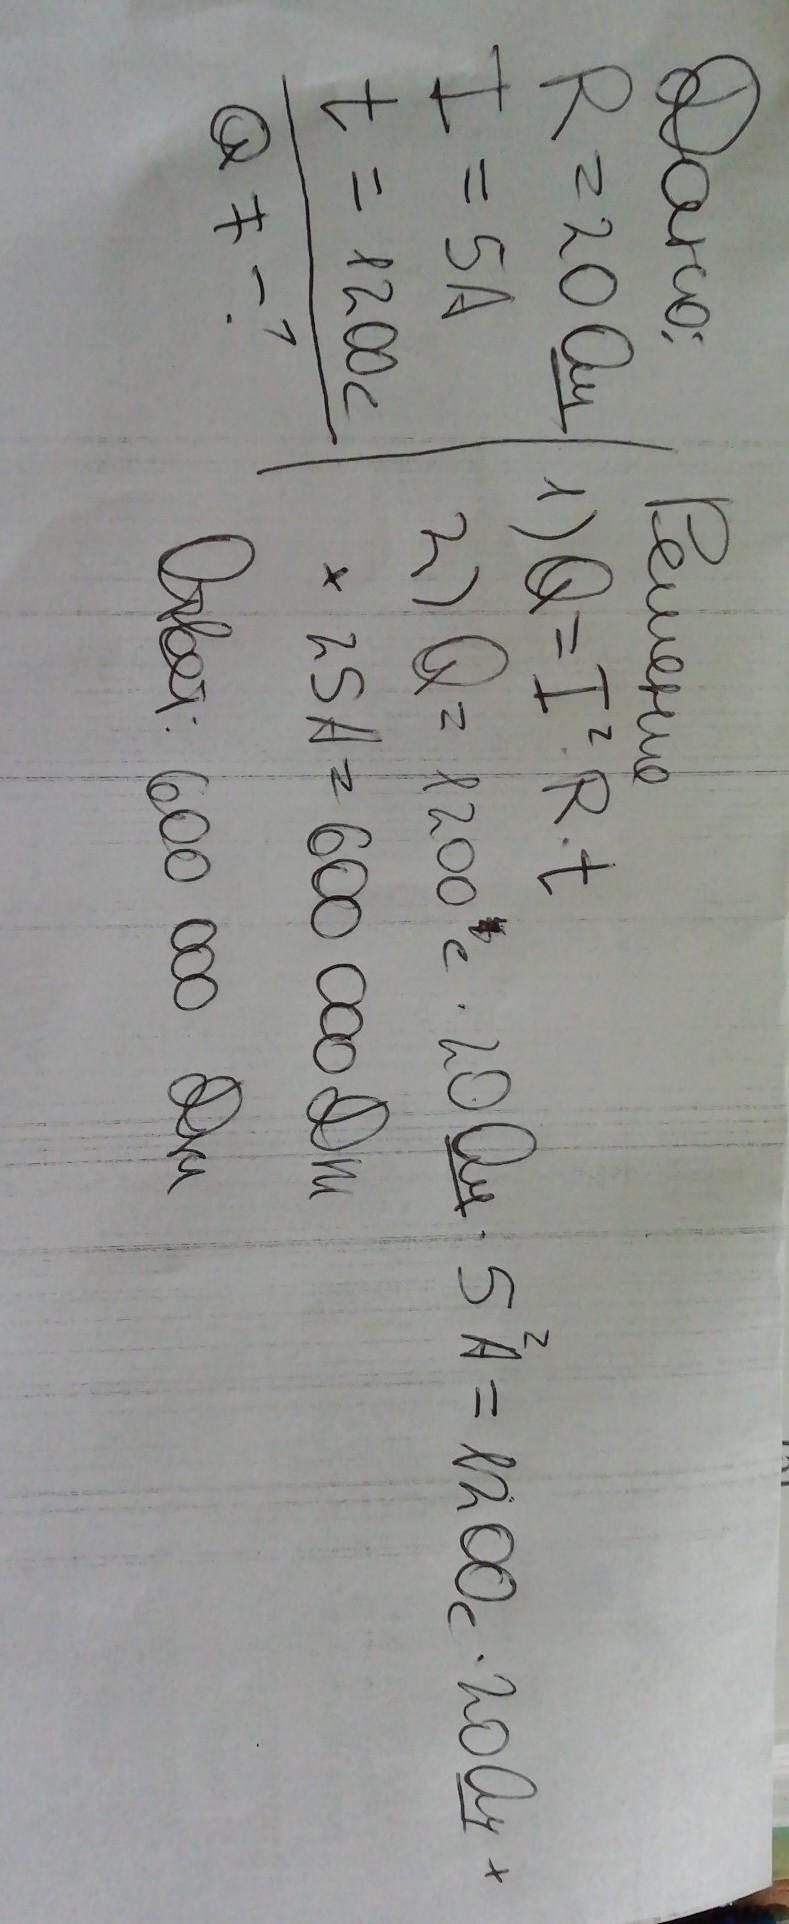 Дано:
R = 20 Ом
I = 5А
t = 1200с
Q - ?
Решение
1) Q = I²·R·t
2) Q = 1200 с · 20 Ом · 5²А = 1200с · 20 Ом ×
× 25А = 600 000 Дж
Ответ: 600 000 Дж